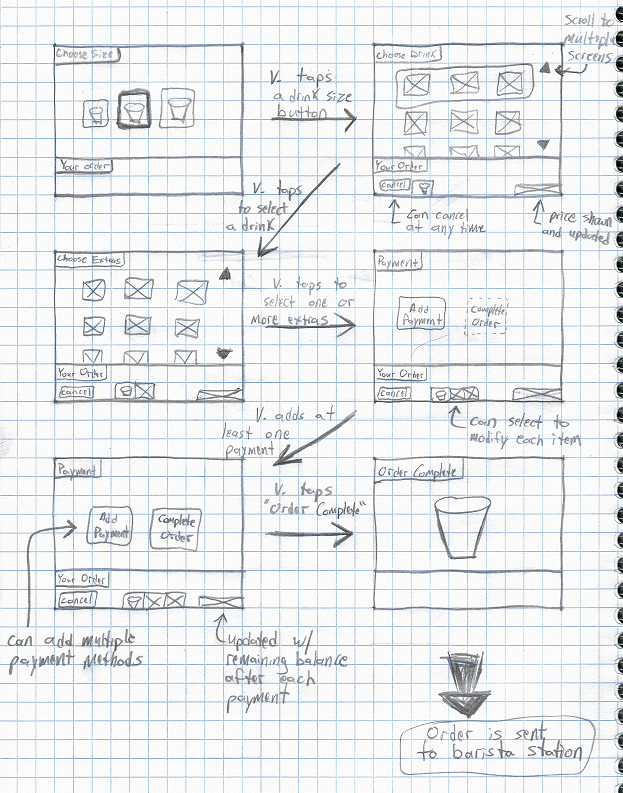 Choose Size
Your order
V. taps
a drink size
button
Scroll to
multiple
screens
Choose Drink
Your Order
cancel
Can cancel
at any time
price shown
and updated
V. taps
to select
a drink
Choose Extras
Your Order
cancel
V. taps to
select one or
more extras
Payment
Add
Payment
Complete
Order
Your Order
cancel
can select to
modify each item
V. adds at
least one
payment
Payment
Add
Payment
Complete
Order
Your Order
cancel
can add multiple
payment methods
updated w/
remaining balance
after each
payment
V. taps
"Order Complete"
Order Complete
Order is sent
to barista station